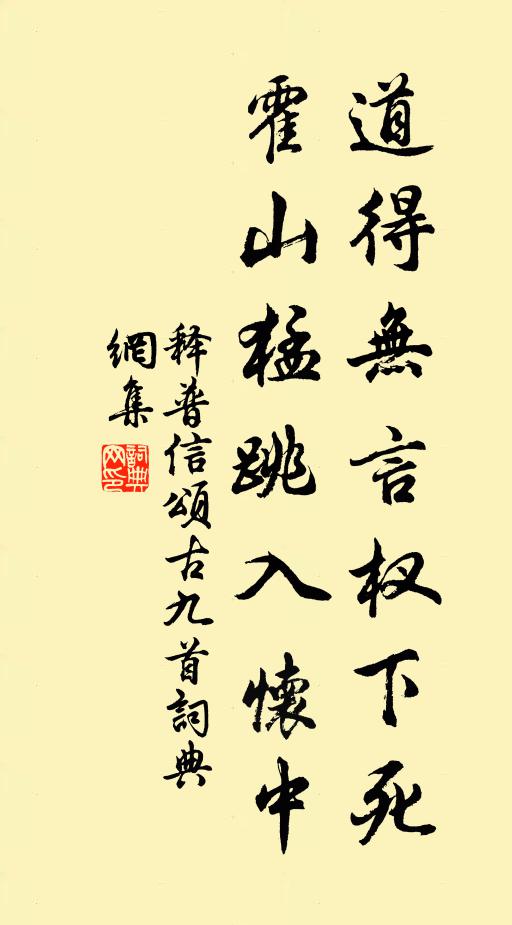 道得無言杈下死
霍山猛跳入懷中
释普信頌古九首詞典
網集
詞典網印